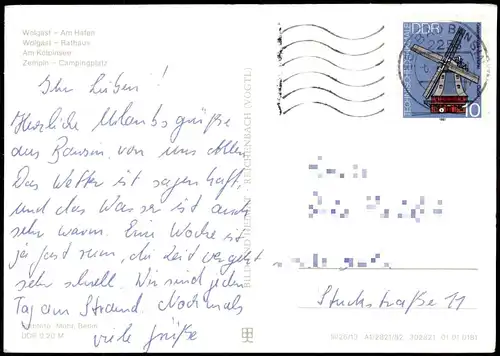 Wolgast – Am Hafen
Wolgast – Rathaus
Am Kölpinsee
Zempin – Campingplatz
Ihr Lieben!
Herzliche Urlaubsgrüße
aus Bansin von uns Allen.
Das Wetter ist sagenhaft,
und das Wasser ist auch
sehr warm. Eine Woche ist
ja fast rum, die Zeit vergeht
sehr schnell. Wir sind jeden
Tag am Strand. Nochmals
viele Grüße
Mohr, Berlin
DDR 0,20 M
BILD UND HEIMAT REICHENBACH (VOGTL)
DDR
10
BANSIN
2255
Stuckstraße 11
01 01 0181